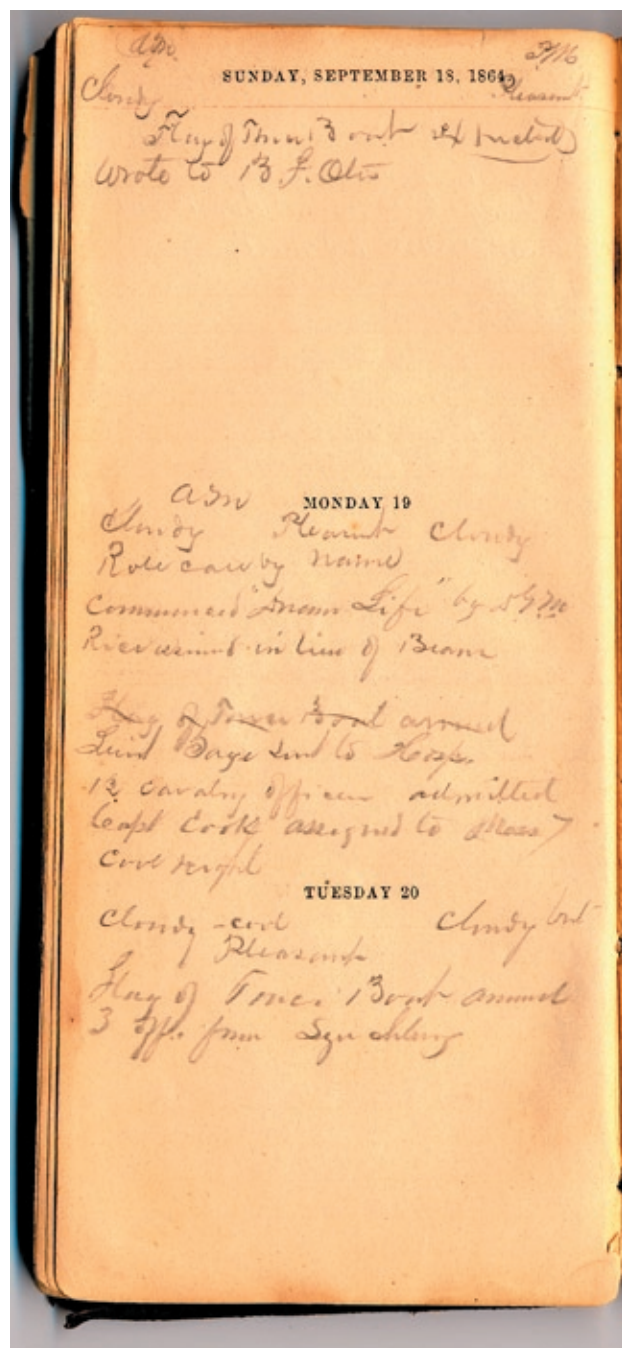 AM. PM
SUNDAY, SEPTEMBER 18, 1864.
Cloudy Pleasant
Flag of Truce Boat expected
Wrote to B F. Otis
AM
MONDAY 19
Cloudy Pleasant Cloudy
Role call by name
Commenced "Dream Life" by
Rice in lieu of Beans
Flag of Truce Boat arrived
Lieut Page sent to Hosp.
12 cavalry officers admitted
Capt Cook assigned to Mess 7
Cool night
TUESDAY 20
Cloudy - cool Cloudy but
Pleasant
Flag of Truce Boat arrived
3 off. from Lynchburg